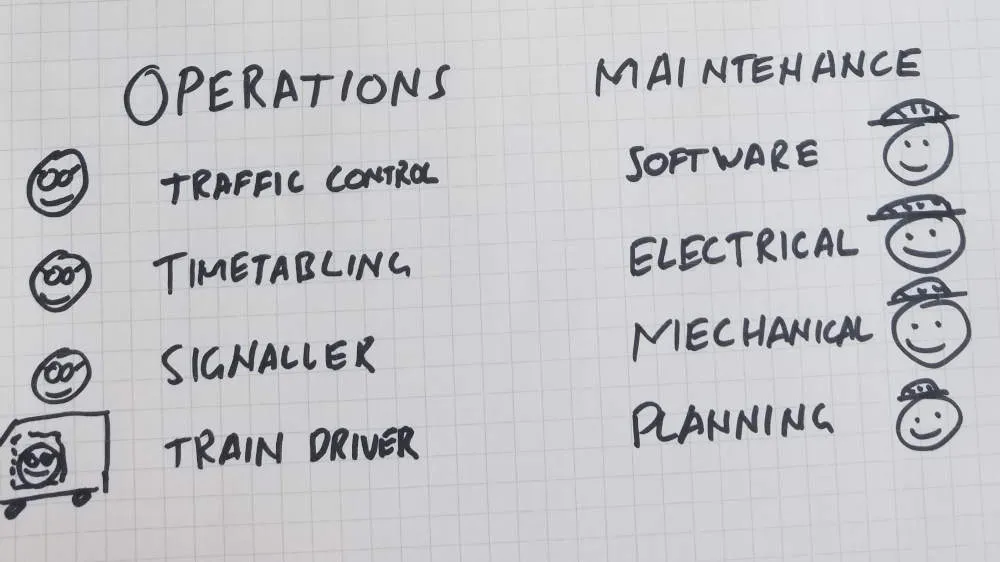 OPERATIONS
TRAFFIC CONTROL
TIMETABLING
SIGNALLER
TRAIN DRIVER
MAINTENANCE
SOFTWARE
ELECTRICAL
MECHANICAL
PLANNING